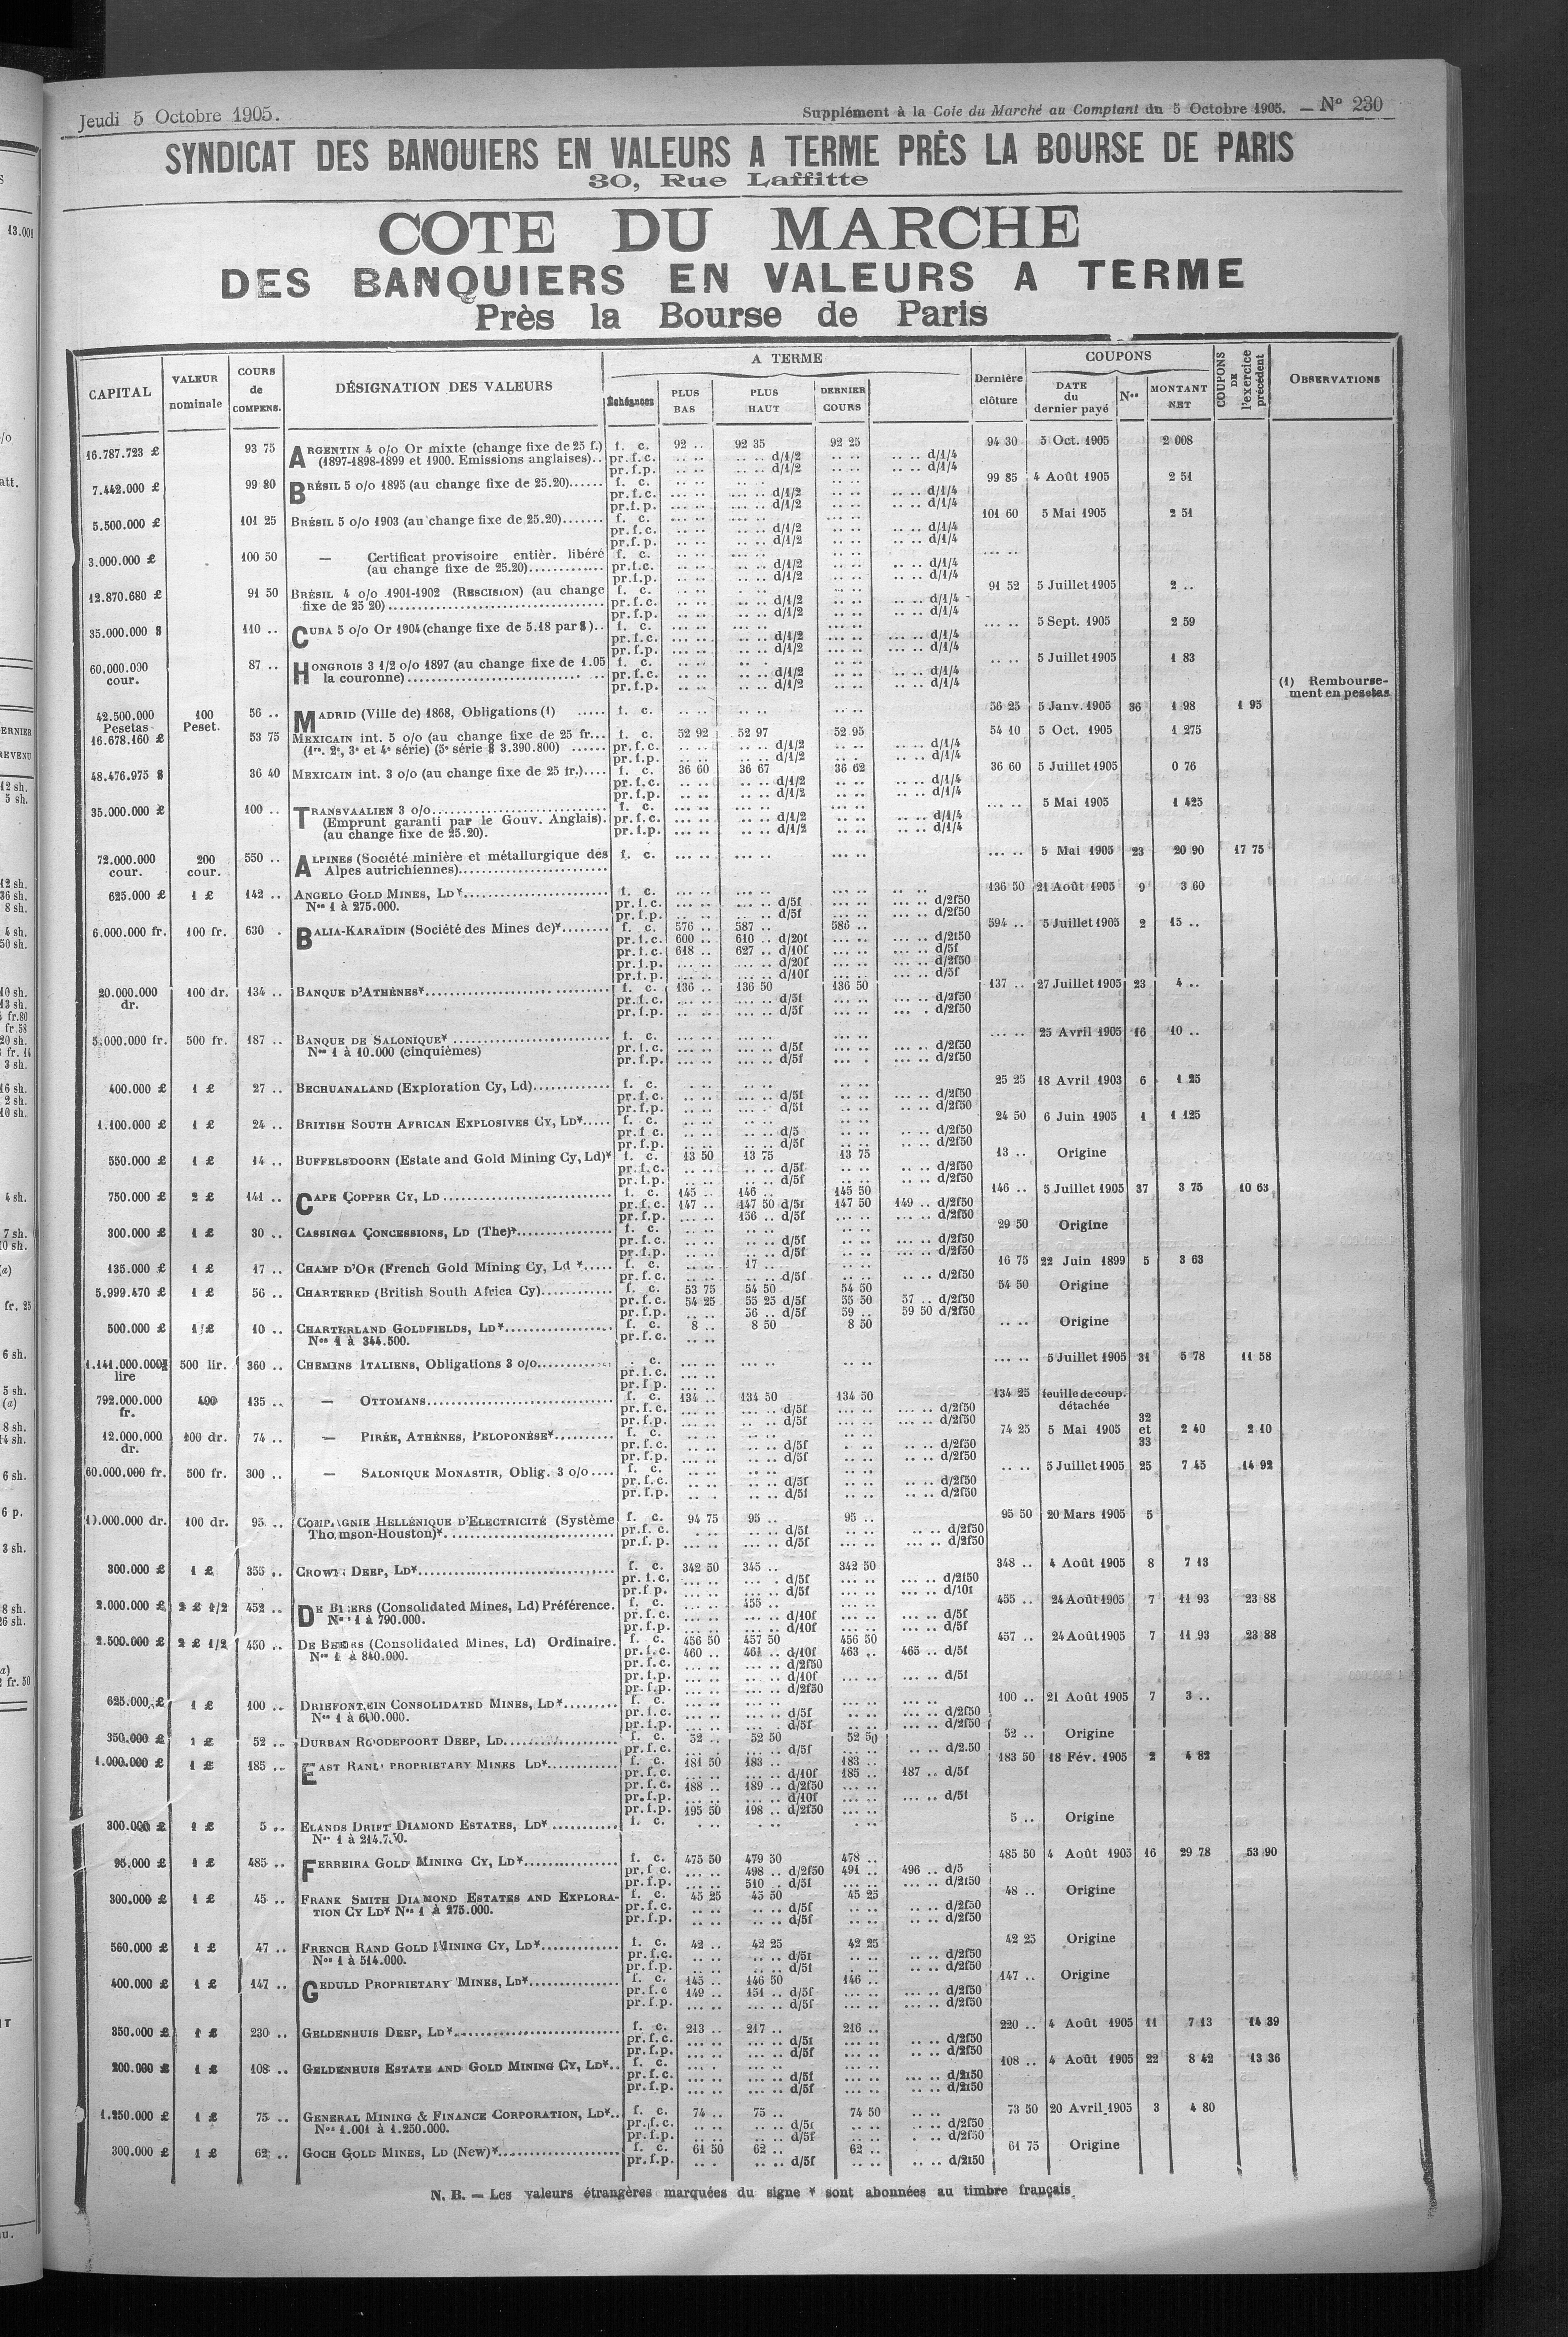 Jeudi 5 Octobre 1905.
Supplément à la Cote du Marché au Comptant du 5 Octobre 1905. — N° 230
SYNDICAT DES BANQUIERS EN VALEURS A TERME PRÈS LA BOURSE DE PARIS
30, Rue Laffitte
COTE DU MARCHE
DES BANQUIERS EN VALEURS A TERME
Près la Bourse de Paris
CAPITAL | VALEUR nominale | COURS de COMPENS. | DÉSIGNATION DES VALEURS | A TERME | Échéances | PLUS BAS | PLUS HAUT | DERNIER COURS | Dernière clôture | COUPONS | DATE du dernier payé | Nos | MONTANT NET | COUPONS DE l'exercice précédent | OBSERVATIONS
16.787.723 £ 93 75 ARGENTIN 4 o/o Or mixte (change fixe de 25 f.) f. c. 92 .. 92 35 92 25 94 30 5 Oct. 1905 2 008
(1897-1898-1899 et 1900. Emissions anglaises).. pr.f.c. d/1/2 d/1/4
pr.f.p. d/1/2 d/1/4
7.442.000 £ 99 80 BRÉSIL 5 o/o 1895 (au change fixe de 25.20)...... f. c. 99 85 4 Août 1905 2 51
pr.f.c. d/1/2 d/1/4
pr.f.p. d/1/2 d/1/4
5.500.000 £ 101 25 BRÉSIL 5 o/o 1903 (au change fixe de 25.20)....... f. c. 101 60 5 Mai 1905 2 51
pr.f.c. d/1/2 d/1/4
pr.f.p. d/1/2 d/1/4
3.000.000 £ 100 50 — Certificat provisoire entièr. libéré f. c. .... ..
(au change fixe de 25.20)............. pr.f.c. d/1/2 d/1/4
pr.f.p. d/1/2 d/1/4
12.870.680 £ 91 50 BRÉSIL 4 o/o 1901-1902 (RESCISION) (au change f. c. 91 52 5 Juillet 1905 2 ..
fixe de 25 20)................ pr.f.c. d/1/2 d/1/4
pr.f.p. d/1/2 d/1/4
35.000.000 $ 110 .. CUBA 5 o/o Or 1904 (change fixe de 5.18 par $).. f. c. .... .. 5 Sept. 1905 2 59
pr.f.c. d/1/2 d/1/4
pr.f.p. d/1/2 d/1/4
60.000.000 cour. 87 .. HONGROIS 3 1/2 o/o 1897 (au change fixe de 1.05 f. c. .. .. 5 Juillet 1905 1 83
la couronne)................ pr.f.c. d/1/2 d/1/4
pr.f.p. d/1/2 d/1/4
(1) Remboursement en pesetas
42.500.000 Pesetas 100 Peset. 56 .. MADRID (Ville de) 1868, Obligations (1) ..... f. c. 56 25 5 Janv. 1905 36 1 98 1 95
16.678.160 £ 53 75 MEXICAIN int. 5 o/o (au change fixe de 25 fr... f. c. 52 92 52 97 52 95 54 10 5 Oct. 1905 1 275
(1re. 2e, 3e et 4e série) (5e série $ 3.390.800) ...... pr.f.c. d/1/2 d/1/4
pr.f.p. d/1/2 d/1/4
48.476.975 $ 36 40 MEXICAIN int. 3 o/o (au change fixe de 25 fr.).... f. c. 36 60 36 67 36 62 36 60 5 Juillet 1905 0 76
pr.f.c. d/1/2 d/1/4
pr.f.p. d/1/2 d/1/4
35.000.000 £ 100 .. TRANSVAALIEN 3 o/o............ f. c. .... .. 5 Mai 1905 1 425
(Emprunt garanti par le Gouv. Anglais). pr.f.c. d/1/2 d/1/4
(au change fixe de 25.20). pr.f.p. d/1/2 d/1/4
72.000.000 cour. 200 cour. 550 .. ALPINES (Société minière et métallurgique des f. c. .... .. 5 Mai 1905 23 20 90 17 75
Alpes autrichiennes)............
625.000 £ 1 £ 142 .. ANGELO GOLD MINES, LD*............ f. c. 136 50 21 Août 1905 9 3 60
Nos 1 à 275.000. pr.f.c. d/5f d/2f50
pr.f.p. d/5f d/2f50
6.000.000 fr. 100 fr. 630 . BALIA-KARAÏDIN (Société des Mines de)*........ f. c. 576 .. 587 .. 586 .. 594 .. 5 Juillet 1905 2 15 ..
pr.f.c. 600 .. 610 .. d/20f d/2f50
pr.f.c. 618 .. 627 .. d/10f d/5f
pr.f.p. d/20f d/2f50
pr.f.p. d/10f d/5f
20.000.000 dr. 100 dr. 134 .. BANQUE D'ATHÈNES*............ f. c. 136 .. 136 50 136 50 137 .. 27 Juillet 1905 23 4 ..
pr.f.c. d/5f d/2f50
pr.f.p. d/5f d/2f50
5.000.000 fr. 500 fr. 187 .. BANQUE DE SALONIQUE* ............ f. c. .... .. 25 Avril 1905 16 10 ..
Nos 1 à 10.000 (cinquièmes) pr.f.c. d/5f d/2f50
pr.f.p. d/5f d/2f50
400.000 £ 1 £ 27 .. BECHUANALAND (Exploration Cy, Ld)............ f. c. 25 25 18 Avril 1903 6 1 25
pr.f.c. d/5f d/2f50
pr.f.p. d/5f d/2f50
1.100.000 £ 1 £ 24 .. BRITISH SOUTH AFRICAN EXPLOSIVES CY, LD*..... f. c. 24 50 6 Juin 1905 1 1 125
pr.f c. d/5 d/2f50
pr.f.p. d/5f d/2f50
550.000 £ 1 £ 14 .. BUFFELSDOORN (Estate and Gold Mining Cy, Ld)* f. c. 13 50 13 75 13 75 13 .. Origine
pr.f.c. d/5f d/2f50
pr.f.p. d/5f d/2f50
750.000 £ 2 £ 141 .. CAPE COPPER CY, LD ............ f. c. 145 .. 146 .. 145 50 146 .. 5 Juillet 1905 37 3 75 10 63
pr.f.c. 147 .. 147 50 d/5f 147 50 149 .. d/2f50
pr.f.p. 156 .. d/5f d/2f50
300.000 £ 1 £ 30 .. CASSINGA CONCESSIONS, LD (The)*............ f. c. 29 50 Origine
pr.f.c. d/5f d/2f50
pr.f.p. d/5f d/2f50
135.000 £ 1 £ 17 .. CHAMP D'OR (French Gold Mining Cy, Ld *..... f. c. 17 .. 16 75 22 Juin 1899 5 3 63
pr.f.c. d/5f d/2f50
5.999.470 £ 1 £ 56 .. CHARTERED (British South Africa Cy)............ f. c. 53 75 54 50 54 50 54 50 Origine
pr.f.c. 54 25 55 25 d/5f 55 50 57 .. d/2f50
pr.f.p. 56 .. d/5f 59 .. 59 50 d/2f50
500.000 £ 1 £ 10 .. CHARTERLAND GOLDFIELDS, LD*............ f. c. 8 .. 8 50 8 50 .. .. Origine
Nos 1 à 344.500. pr.f.c.
1.141.000.000 lire 500 lir. 360 .. CHEMINS ITALIENS, Obligations 3 o/o............ . c. .... .. 5 Juillet 1905 31 5 78 11 58
pr.f.c.
pr.f p.
792.000.000 fr. 400 135 .. — OTTOMANS............ f. c. 134 .. 134 50 134 50 134 25 feuille de coup. détachée
pr.f.c. d/5f d/2f50
pr.f.p. d/5f d/2f50
12.000.000 dr. 100 dr. 74 .. — PIRÉE, ATHÈNES, PELOPONÈSE*.......... f. c. 74 25 5 Mai 1905 32 et 33 2 40 2 10
pr.f.c. d/5f d/2f50
pr.f.p. d/5f d/2f50
60.000.000 fr. 500 fr. 300 .. — SALONIQUE MONASTIR, Oblig. 3 o/o.... f. c. .. .. 5 Juillet 1905 25 7 45 14 92
pr.f.c. d/5f d/2f50
pr.f.p. d/5f d/2f50
10.000.000 dr. 100 dr. 95 .. COMPAGNIE HELLÉNIQUE D'ELECTRICITÉ (Système f. c. 94 75 95 .. 95 .. 95 50 20 Mars 1905 5
Thomson-Houston)*............ pr.f. c. d/5f d/2f50
pr.f. p. d/5f d/2f50
300.000 £ 1 £ 355 .. CROWN DEEP, LD*............ f. c. 342 50 345 .. 342 50 348 .. 4 Août 1905 8 7 13
pr.f.c. d/5f d/2f50
pr.f.p. d/5f d/10f
2.000.000 £ 2 £ 1/2 452 .. DE BEERS (Consolidated Mines, Ld) Préférence. f. c. 455 .. 455 .. 24 Août 1905 7 11 93 23 88
Nos 1 à 790.000. pr.f.c. d/10f d/5f
pr.f.p. d/10f d/5f
2.500.000 £ 2 £ 1/2 450 .. DE BEERS (Consolidated Mines, Ld) Ordinaire. f. c. 456 50 457 50 456 50 457 .. 24 Août 1905 7 11 93 23 88
Nos 1 à 840.000. pr.f.c. 460 .. 461 .. d/10f 463 .. 465 .. d/5f
pr.f.c. d/2f50
pr.f.p. d/10f d/5f
pr.f.p. d/2f50
625.000 £ 1 £ 100 .. DRIEFONTEIN CONSOLIDATED MINES, LD*......... f. c. 100 .. 21 Août 1905 7 3 ..
Nos 1 à 600.000. pr.f.c. d/5f d/2f50
pr.f.p. d/5f d/2f50
350.000 £ 1 £ 52 .. DURBAN ROODEPOORT DEEP, LD............ f. c. 52 .. 52 50 52 50 52 .. Origine
pr.f.c. d/5f d/2.50
1.000.000 £ 1 £ 185 .. EAST RAND PROPRIETARY MINES LD*............ f. c. 181 50 183 .. 183 .. 183 50 18 Fév. 1905 2 4 82
pr.f.c. d/10f 185 .. 187 .. d/5f
pr.f.c. 188 .. 189 .. d/2f50
pr.f.p. d/10f d/5f
pr.f.p. 195 50 198 .. d/2f50
300.000 £ 1 £ 5 .. ELANDS DRIFT DIAMOND ESTATES, LD* ........... f. c. 5 .. Origine
Nos 1 à 214.750.
95.000 £ 1 £ 485 .. FERREIRA GOLD MINING CY, LD*............ f. c. 475 50 479 50 478 .. 485 50 4 Août 1905 16 29 78 53 90
pr.f c. 498 .. d/2f50 491 .. 496 .. d/5
pr.f.p. 510 .. d/5f d/2f50
300.000 £ 1 £ 45 .. FRANK SMITH DIAMOND ESTATES AND EXPLORA- f. c. 45 25 45 50 45 25 48 .. Origine
TION CY LD* Nos 1 à 275.000. pr.f.c. d/5f d/2f50
pr.f.p. d/5f d/2f50
560.000 £ 1 £ 47 .. FRENCH RAND GOLD MINING CY, LD*............ f. c. 42 .. 42 25 42 25 42 25 Origine
Nos 1 à 514.000. pr.f.c. d/5f d/2f50
pr.f.p. d/5f d/2f50
400.000 £ 1 £ 147 .. GEDULD PROPRIETARY MINES, LD*............ f. c. 145 .. 146 50 146 .. 147 .. Origine
pr.f.c 149 .. 151 .. d/5f d/2f50
pr.f.p. d/5f d/2f50
350.000 £ 1 £ 230 .. GELDENHUIS DEEP, LD*............ f. c. 213 .. 217 .. 216 .. 220 .. 4 Août 1905 11 7 13 14 39
pr.f.c. d/5f d/2f50
pr.f.p. d/5f d/2f50
200.000 £ 1 £ 108 .. GELDENHUIS ESTATE AND GOLD MINING CY, LD*.. f. c. 108 .. 4 Août 1905 22 8 42 13 36
pr.f.c. d/5f d/2f50
pr.f.p. d/5f d/2f50
1.250.000 £ 1 £ 75 .. GENERAL MINING & FINANCE CORPORATION, LD*.. f. c. 74 .. 75 .. 74 50 73 50 20 Avril 1905 3 4 80
Nos 1.001 à 1.250.000. pr.f.c. d/5f d/2f50
pr.f.p. d/5f d/2f50
300.000 £ 1 £ 62 .. GOCH GOLD MINES, LD (New)*............ f. c. 61 50 62 .. 62 .. 61 75 Origine
pr.f.p. d/5f d/2f50
N. B. — Les valeurs étrangères marquées du signe * sont abonnées au timbre français